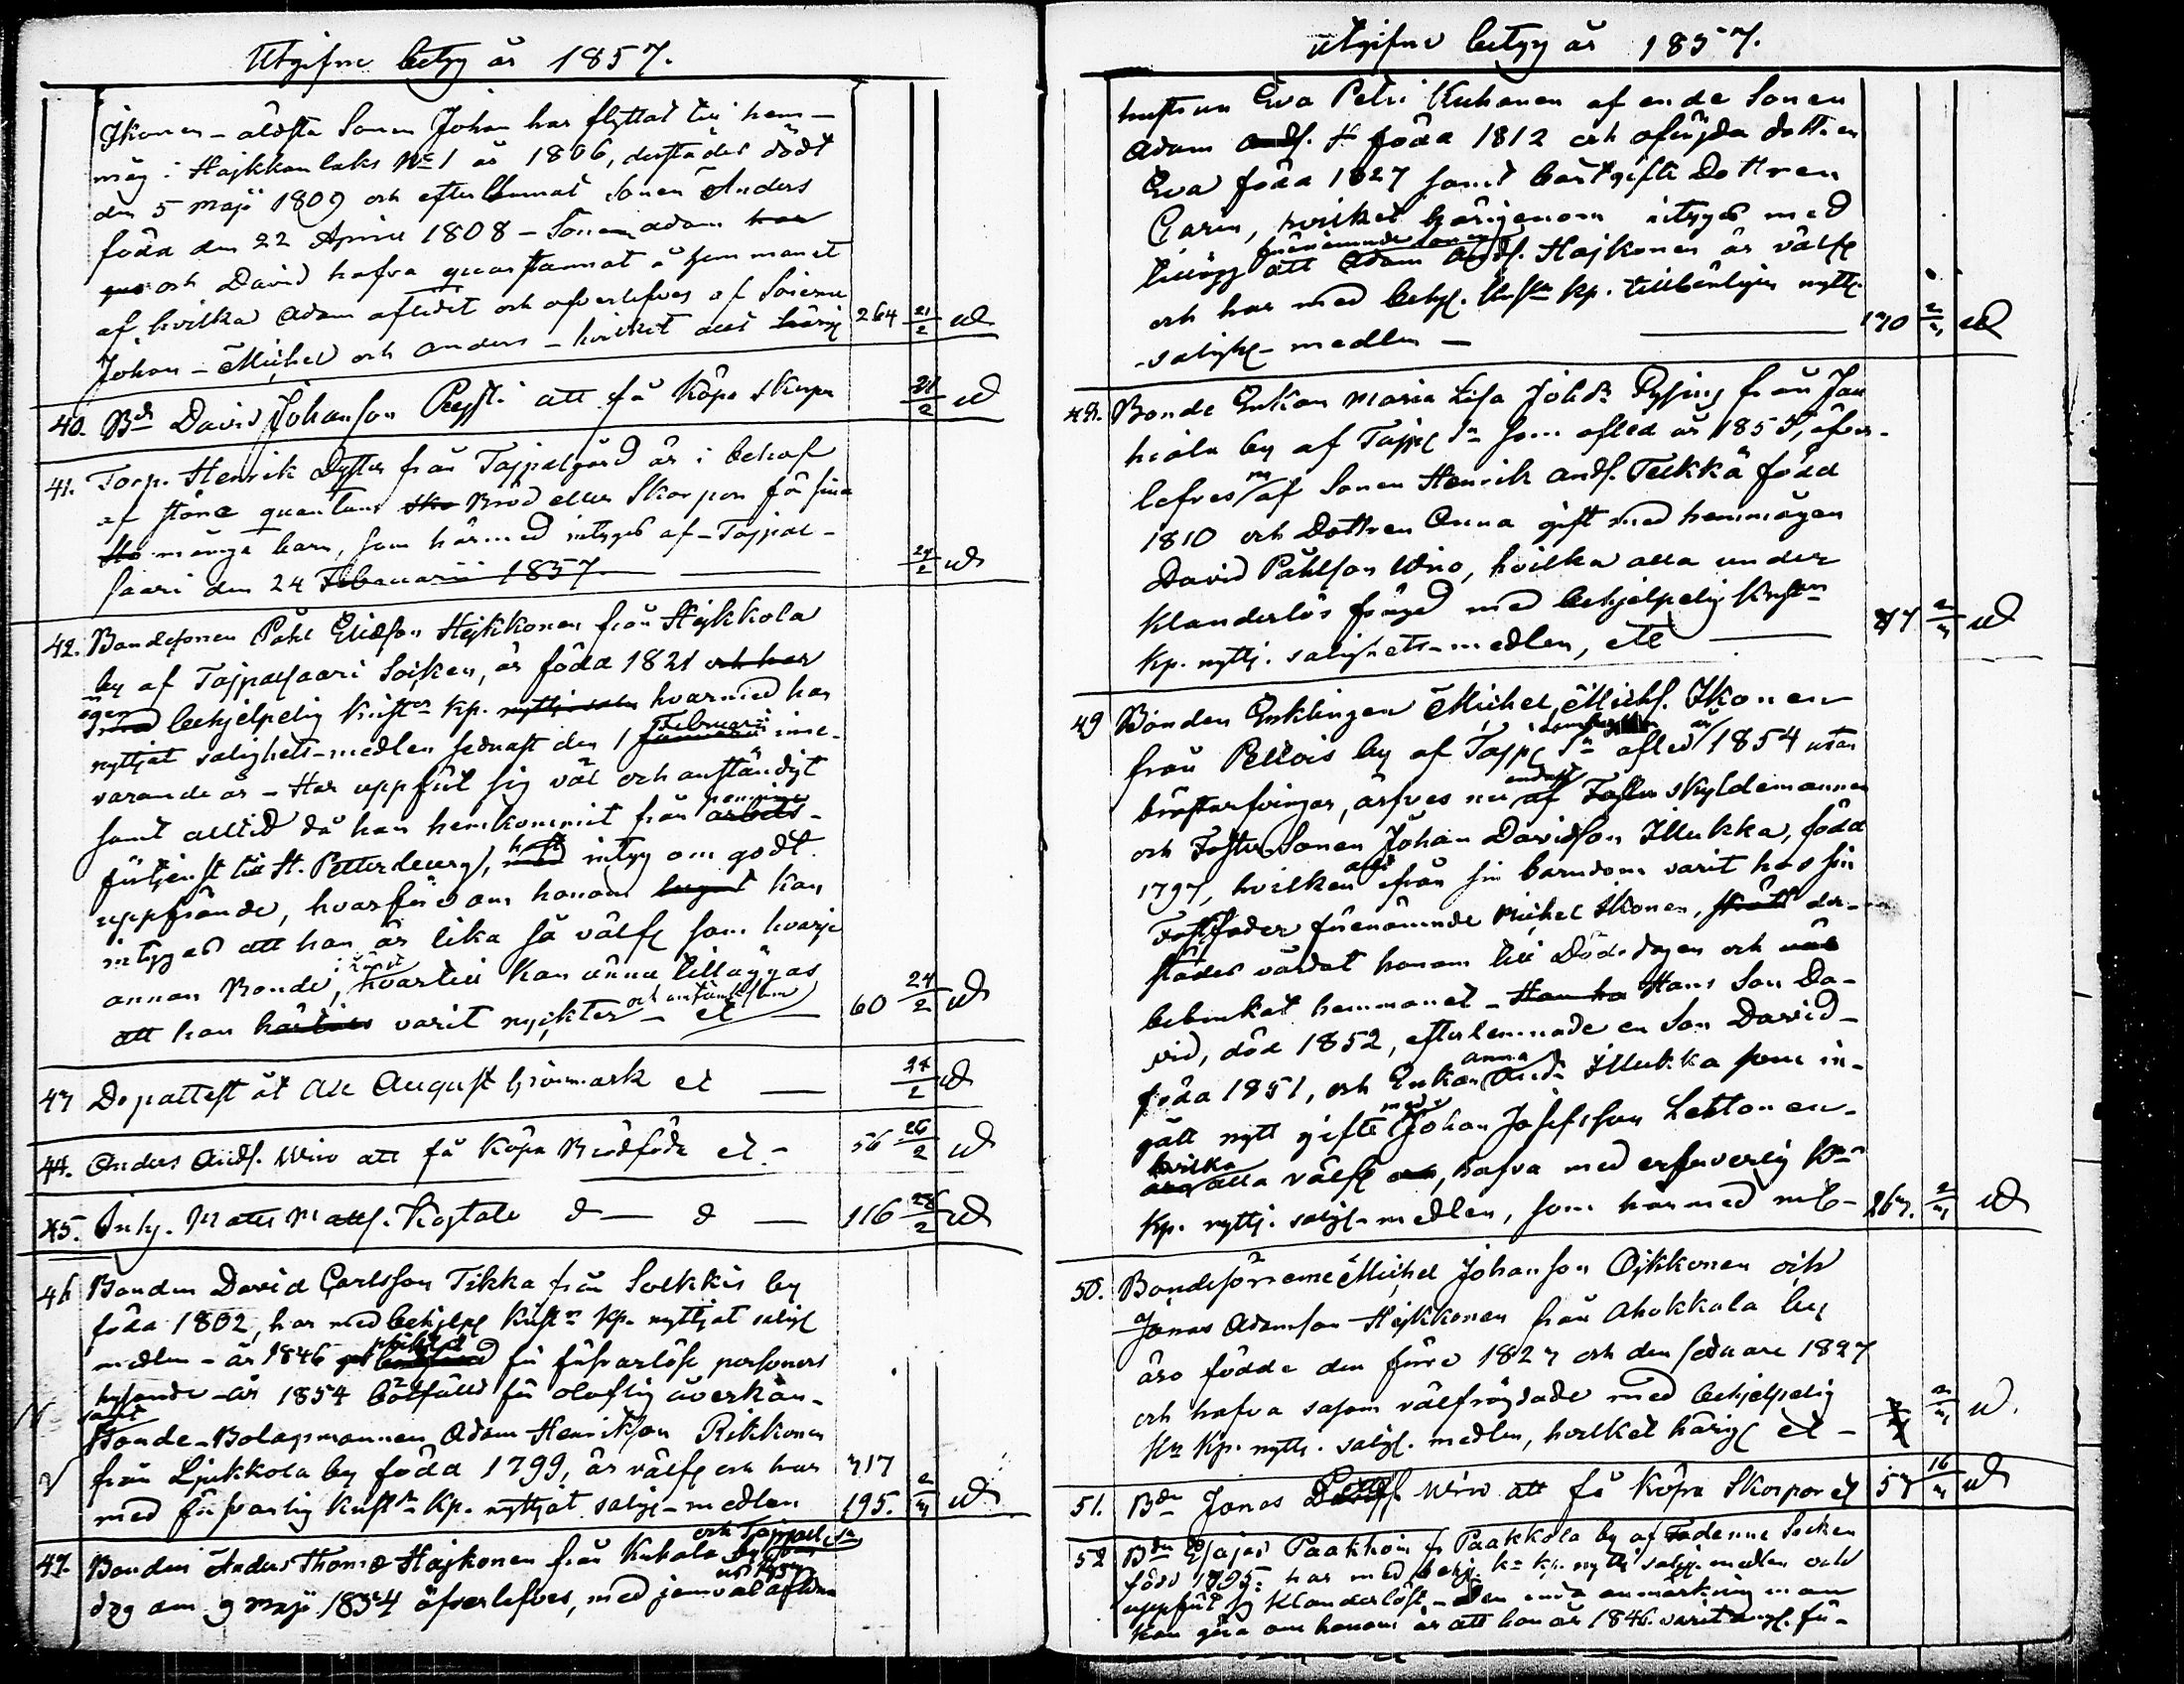 Utgifne betyg år 1857.
Ikonen - äldsta Sonen Johan har flyttat till hem-
måg i Hajkkanlaks No 1 år 1806, derstädes dödt
den 5 Maji 1809 och efterlemnat Sonen Anders
född den 22 Aprill 1808 - Sonen Adam har
och David hafva quarstannat å hemmanet
af hvilka Adam aflidit och öfverlefves af Sönerne
Johan - Michel och Anders - hvilket allt härig 264 21/2 ud
40. Bdn David Johansson Peysti att få köpa skorpor 21/2 ud
41. Torp. Henrik Dytter från Tajpalgård är i behof
af större quantum sko Bröd eller Skorpor för sina
sto många barn, som härmed intygas af - Tajpal-
saari den 24 Februarii 1857 24/2 ud
42. Bondesonen Påhl Eliasson Hejkkonen från Hejkkola
by af Tajpalsaari Socken, är född 1821 och har
egen med behjelpelig Christ. kp. nyttj. salu hvarmed han
nyttjat salighets-medlen sednast den 1 Februari Januarii inne-
varande år - Har uppfört sig väl och anständigt
samt alltid då han hemkommit från penninge arbets-
förtjenst till St. Petersburg, haft med intyg om godt
uppförande, hvarföre om honom kan
intygas att han är lika så välfr som hvarje
annan Bonde, hvartill kan ännu tilläggas
att han varit nyckter och arbetsam - et - 60 24/2 ud
43 Dopattest åt Carl August Grönmark et 24/2 ud
44. Anders Ands. Wiro att få köpa Brödföda et - 56 26/2 ud
45. Inhs. Matts Matts. Kojtala d - d - 116 28/2 ud
46 Bonden David Carlsson Tikka från Solkkis by
född 1802, har med behjelpl Christn kp. nyttjat salig
medlen - år 1846 pliktfäld för försvarslöse personers
hysande - år 1854 bötfälld för oloflig åverkan -
samt Bonde-Bolagsmannen Adam Henriksson Rikkonen
från Ljukkola by född 1799, är välfr och har 717
med försvarlig Christn kp. nyttjat salig-medlen 195. 2/3 ud
47. Bonden Anders Thomæ Hajkonen från Kuhala by och Tajpal Sn
dog den 9 Maji 1834 öfverlefves, med jemväl aflidna
Utgifne betyg år 1857.
hustrun Eva Petri Kuhanen af ende Sonen
Adam Ands. H född 1812 och ofärjda dottren
Eva född 1827 samt bortgifta Dottren
Carin, hvilket härigenom intygas med
tillägg att förenämnde sonen Adam Ands. Hajkonen är välfr
och har med behjl. Christn kp. tillbörligen nyttj.
saligh-medlen - 170 2/3 ud
48. Bonde Enkan Maria Lisa Johdr Pysing från Jan
hiala by af Tajpl Sn som afled år 1855, öfver-
lefves af Sonen Henrik Ands. Tukkä född
1810 och Dottren Anna gift med hemmågen
David Påhlson Wiro, hvilka alla under
klanderlös frägd med behjelpelig Christn
kp. nyttj. salighets-medlen, ett 77 2/3 ud
49 Bonden Enklingen Michel Michls. Ikonen
från Pellois by af Tajpl Sn afled år 1854 utan
bröstarfvingar, ärfves nu endast af Foster skyldemannen
och Foster Sonen Johan Davidsson Illukka, född
1797, hvilken allt ifrån sin barndom varit hos sin
Fosterfader förenämnde Michel Ikonen, skött der-
städes vårdat honom till Dödsdagen och väl
bebrukat hemmanet - Han ha Hans Son Da-
vid, död 1852, efterlemnade en Son David -
född 1851, och Enkan Anna Andr Illukka som in-
gått nytt gifte med Johan Josefsson Lehtonen -
hvilka äro alla välfr och, hafva med erforderlig Kn
kp. nyttj. saligh-medlen, som härmed int - 267. 2/3 ud
50. Bondesönerne Michel Johansson Ojkkonen och
Jonas Adamson Hejkkonen från Ahokkala by
äro födde den förre 1827 och den sednare 1827
och hafva såsom välfrägdade med behjelpelig
Kn kp. nyttj. saligh. medlen, hvilket härig et - 2/3 ud.
51. Bdn Jonas Wiro att få köpa Skorpor et 57 16/3 ud
52 Bdn Esajas Paakkoin fr Paakkola by af Fadenne Socken
född 1795. har med behj. kn kp. nyttj salig. medlen och
uppfört sig klanderlöst - Den enda anmärkning man
kan göra om honom är att han år 1846 varit angl. för-